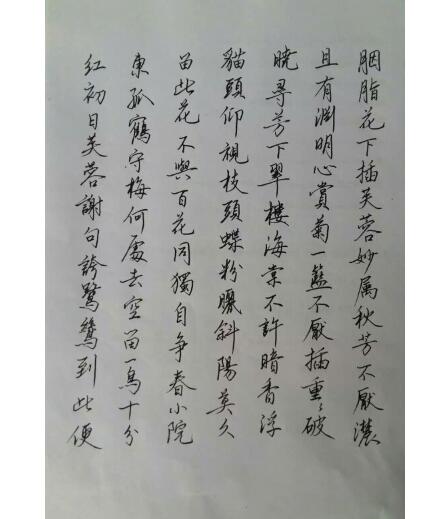 胭脂花下插芙蓉妙属秋芳不厭濃
且有淵明心賞菊一籃不厭插重〻破
曉尋芳下翠樓海棠不許暗香浮
貓頭仰視枝頭蝶粉曬斜陽莫久
留此花不與百花同獨自争春小院
東孤鶴守梅何處去空留一鳥十分
紅初日芙蓉謝句誇鷺鷥到此便